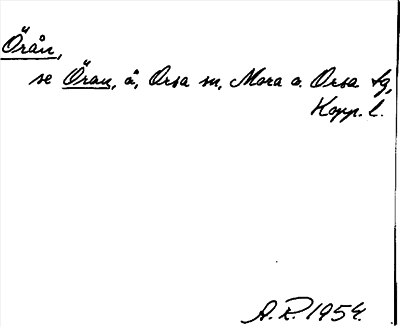 Örån,
se Öran, å, Orsa sn, Mora o. Orsa tg,
Kopp. l.
A.R. 1954.